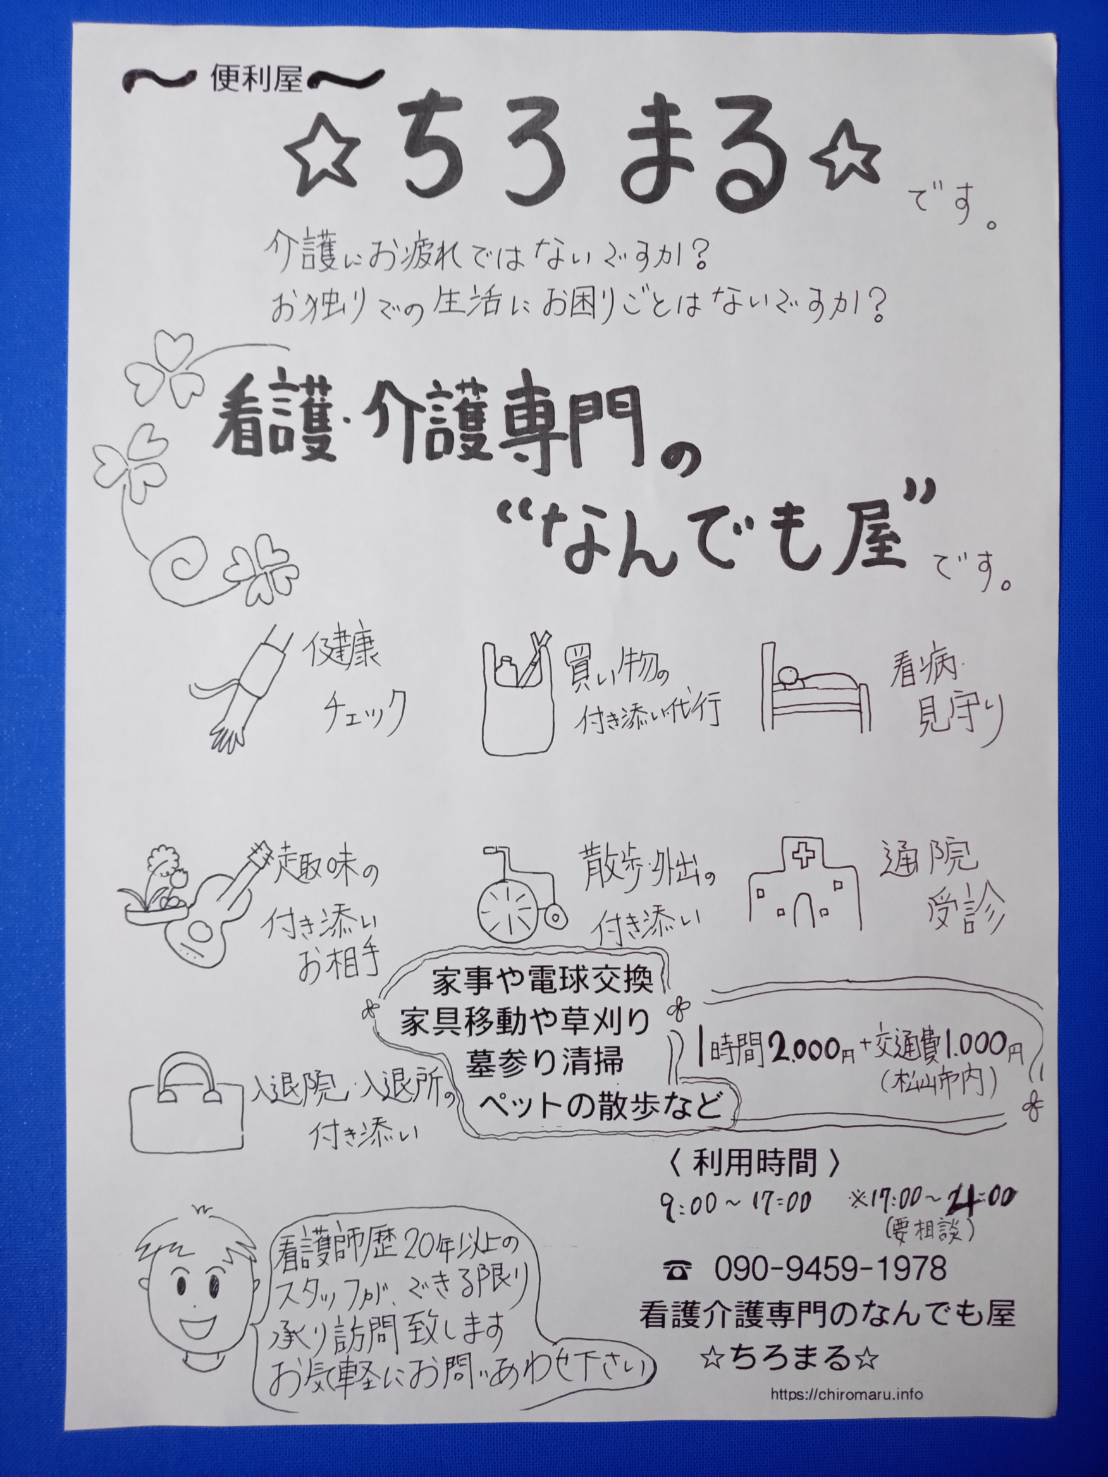 〜便利屋〜
☆ちろまる☆です。
介護にお疲れではないですか？
お独りでの生活にお困りごとはないですか？
看護・介護専門の
“なんでも屋”です。
健康
チェック
買い物の
付き添い代行
看病・
見守り
趣味の
付き添い
お相手
散歩・外出の
付き添い
通院
受診
入退院・入退所の
付き添い
家事や電球交換
家具移動や草刈り
墓参り清掃
ペットの散歩など
1時間2.000円+交通費1.000円
(松山市内)
〈 利用時間 〉
9:00〜17:00 ※17:00〜21:00
(要相談)
☎ 090-9459-1978
看護介護専門のなんでも屋
☆ちろまる☆
https://chiromaru.info
看護師歴20年以上の
スタッフが、できる限り
承り訪問致します
お気軽にお問いあわせ下さい